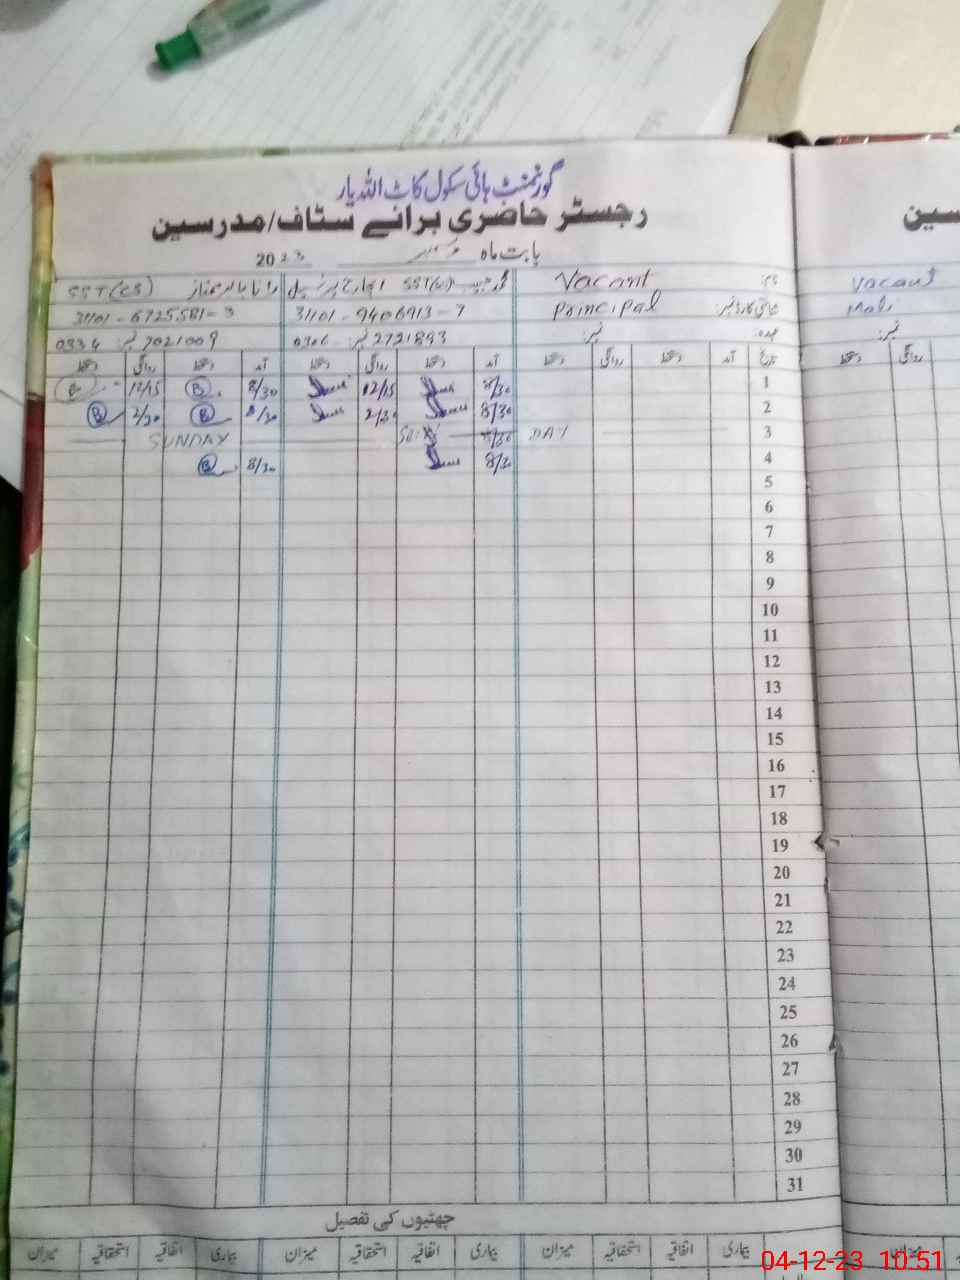 گورنمنٹ ہائی سکول کاٹ اللہ یار
رجسٹر حاضری برائے سٹاف/مدرسین
بابت ماہ دسمبر 2023
نام: Vacant SST انچارج پرنسپل SST (CS)
شناختی کارڈ نمبر: Principal 31101-9406913-7 31101-6725581-3
عہدہ: نمبر: 0306 نمبر: 2721893 0334 نمبر: 7021009
تاریخ آمد دستخط روانگی دستخط آمد دستخط روانگی دستخط آمد دستخط روانگی دستخط
1 8/30 12/15 8/30 B 12/15 B
2 8/30 2/30 8/30 B 2/30 B
3 DAY 8/30 SUN SUNDAY
4 8/30 8/30 B
5
6
7
8
9
10
11
12
13
14
15
16
17
18
19
20
21
22
23
24
25
26
27
28
29
30
31
چھٹیوں کی تفصیل
بیماری اتفاقیہ استحقاقیہ میزان بیماری اتفاقیہ استحقاقیہ میزان بیماری اتفاقیہ استحقاقیہ میزان
سین
Vacant
Mali
نمبر:
روانگی دستخط
میزان
04-12-23 10:51